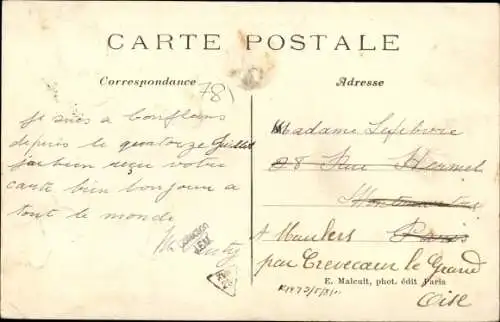 CARTE POSTALE
Correspondance
78)
Adresse
je suis a Conflans
depuis le quatorze Juillet
jai bien reçu votre
carte bien bonjour a
tout le monde
Madame Lefebvre
28 Rue Hermel
Montmartre
Paris
a Maulers
par Crevecœur le Grand
Oise
COLLECTION
E. Malcuit, phot. édit Paris